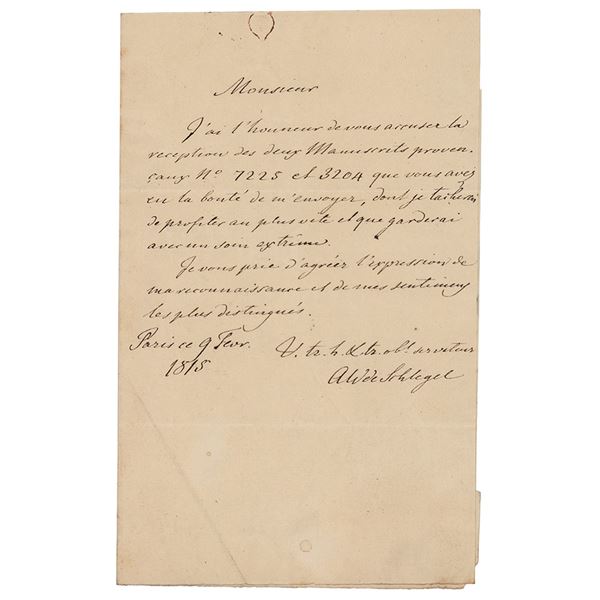 Monsieur
J'ai l'honneur de vous accuser la
reception des deux Manuscrits proven-
çaux Nº 7225 et 3204 que vous avez
eu la bonté de m'envoyer, dont je tacherai
de profiter au plus vite et que garderai
avec un soin extrême.
Je vous prie d'agréer l'expression de
ma reconnaissance et de mes sentimens
les plus distingués.
Paris ce 9 Fevr.
1815
V. tr. h. & tr. obt. serviteur
AW de Schlegel